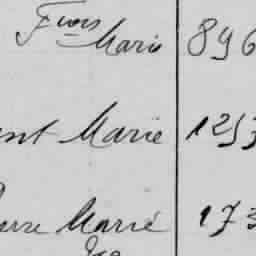 Fcois Marie 896
ent Marie 1253
erre Marie 173